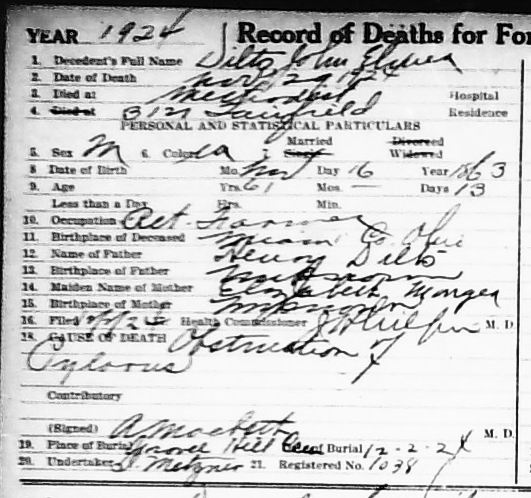 YEAR 1924 Record of Deaths for For
1. Decedent's Full Name Dilts John
2. Date of Death Nov 29 1924
3. Died at Methodist Hospital
4. Died at 3121 Fairfield Residence
PERSONAL AND STATISTICAL PARTICULARS
Married Divorced
5. Sex M 6. Color 7. Single Widowed
8 Date of Birth Mo. Nov Day 16 Year 1863
9. Age Yrs. 61 Mos. — Days 13
Less than a Day Hrs. Min.
10. Occupation Ret. Farmer
11. Birthplace of Deceased Miami Co. Ohio
12. Name of Father Henry Dilts
13. Birthplace of Father Unknown
14. Maiden Name of Mother Elizabeth
15. Birthplace of Mother Unknown
16. Filed Health Commissioner M. D.
18. CAUSE OF DEATH Obstruction of
Pylorus
Contributory
(Signed) M. D.
19. Place of Burial Grove Hill Cem of Burial 12-2-24
20. Undertaker D. Metzner 21. Registered No. 1038